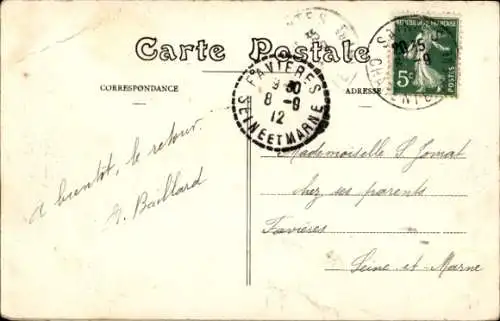 Carte Postale
CORRESPONDANCE
ADRESSE
REPUBLIQUE FRANÇAISE
5c
POSTES
FAVIÈRES
8-9
12
SEINE ET MARNE
A bientôt, le retour.
S. Baillard
Mademoiselle S. Jomat
chez ses parents
Favières
Seine-et-Marne